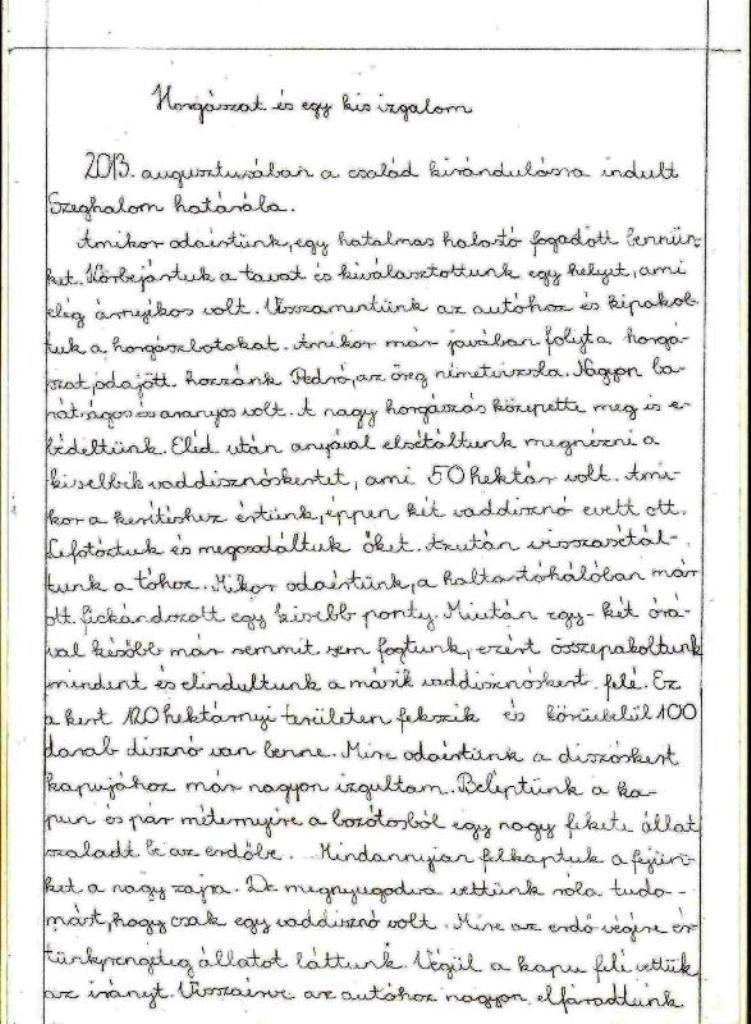 Horgászat és egy kis izgalom
2013. augusztusában a család kirándulásra indult
Szeghalom határába.
Amikor odaértünk, egy hatalmas halastó fogadott bennün-
ket. Körbejártuk a tavat és kiválasztottunk egy helyet, ami
elég árnyékos volt. Visszamentünk az autóhoz és kipakol-
tuk a horgászbotokat. Amikor már javában folyt a horgá-
szat, odajött hozzánk Pedró, az öreg németvizsla. Nagyon ba-
rátságos és aranyos volt. A nagy horgászás közepette meg is e-
bédeltünk. Ebéd után anyával elsétáltunk megnézni a
kisebbik vaddisznóskertet, ami 50 hektár volt. Ami-
kor a kerítéshez értünk, éppen két vaddisznó evett ott.
Lefotóztuk és megcsodáltuk őket. Azután visszasétál-
tunk a tóhoz. Mikor odaértünk, a haltartóhálóban már
ott fickándozott egy kisebb ponty. Miután egy-két órá-
val később már semmit sem fogtunk, ezért összepakoltunk
mindent és elindultunk a másik vaddisznóskert felé. Ez
a kert 120 hektárnyi területen fekszik és körübelül 100
darab disznó van benne. Mire odaértünk a diszóskert
kapujához már nagyon izgultam. Beléptünk a ka-
pun és pár méternyire a bozótosból egy nagy fekete állat
szaladt be az erdőbe. Mindannyian felkaptuk a fejün-
ket a nagy zajra. De megnyugodva vettünk róla tudo-
mást, hogy csak egy vaddisznó volt. Mire az erdő végére ér-
tünk, rengeteg állatot láttunk. Végül a kapu felé vettük
az irányt. Visszaérve az autóhoz nagyon elfáradtunk.